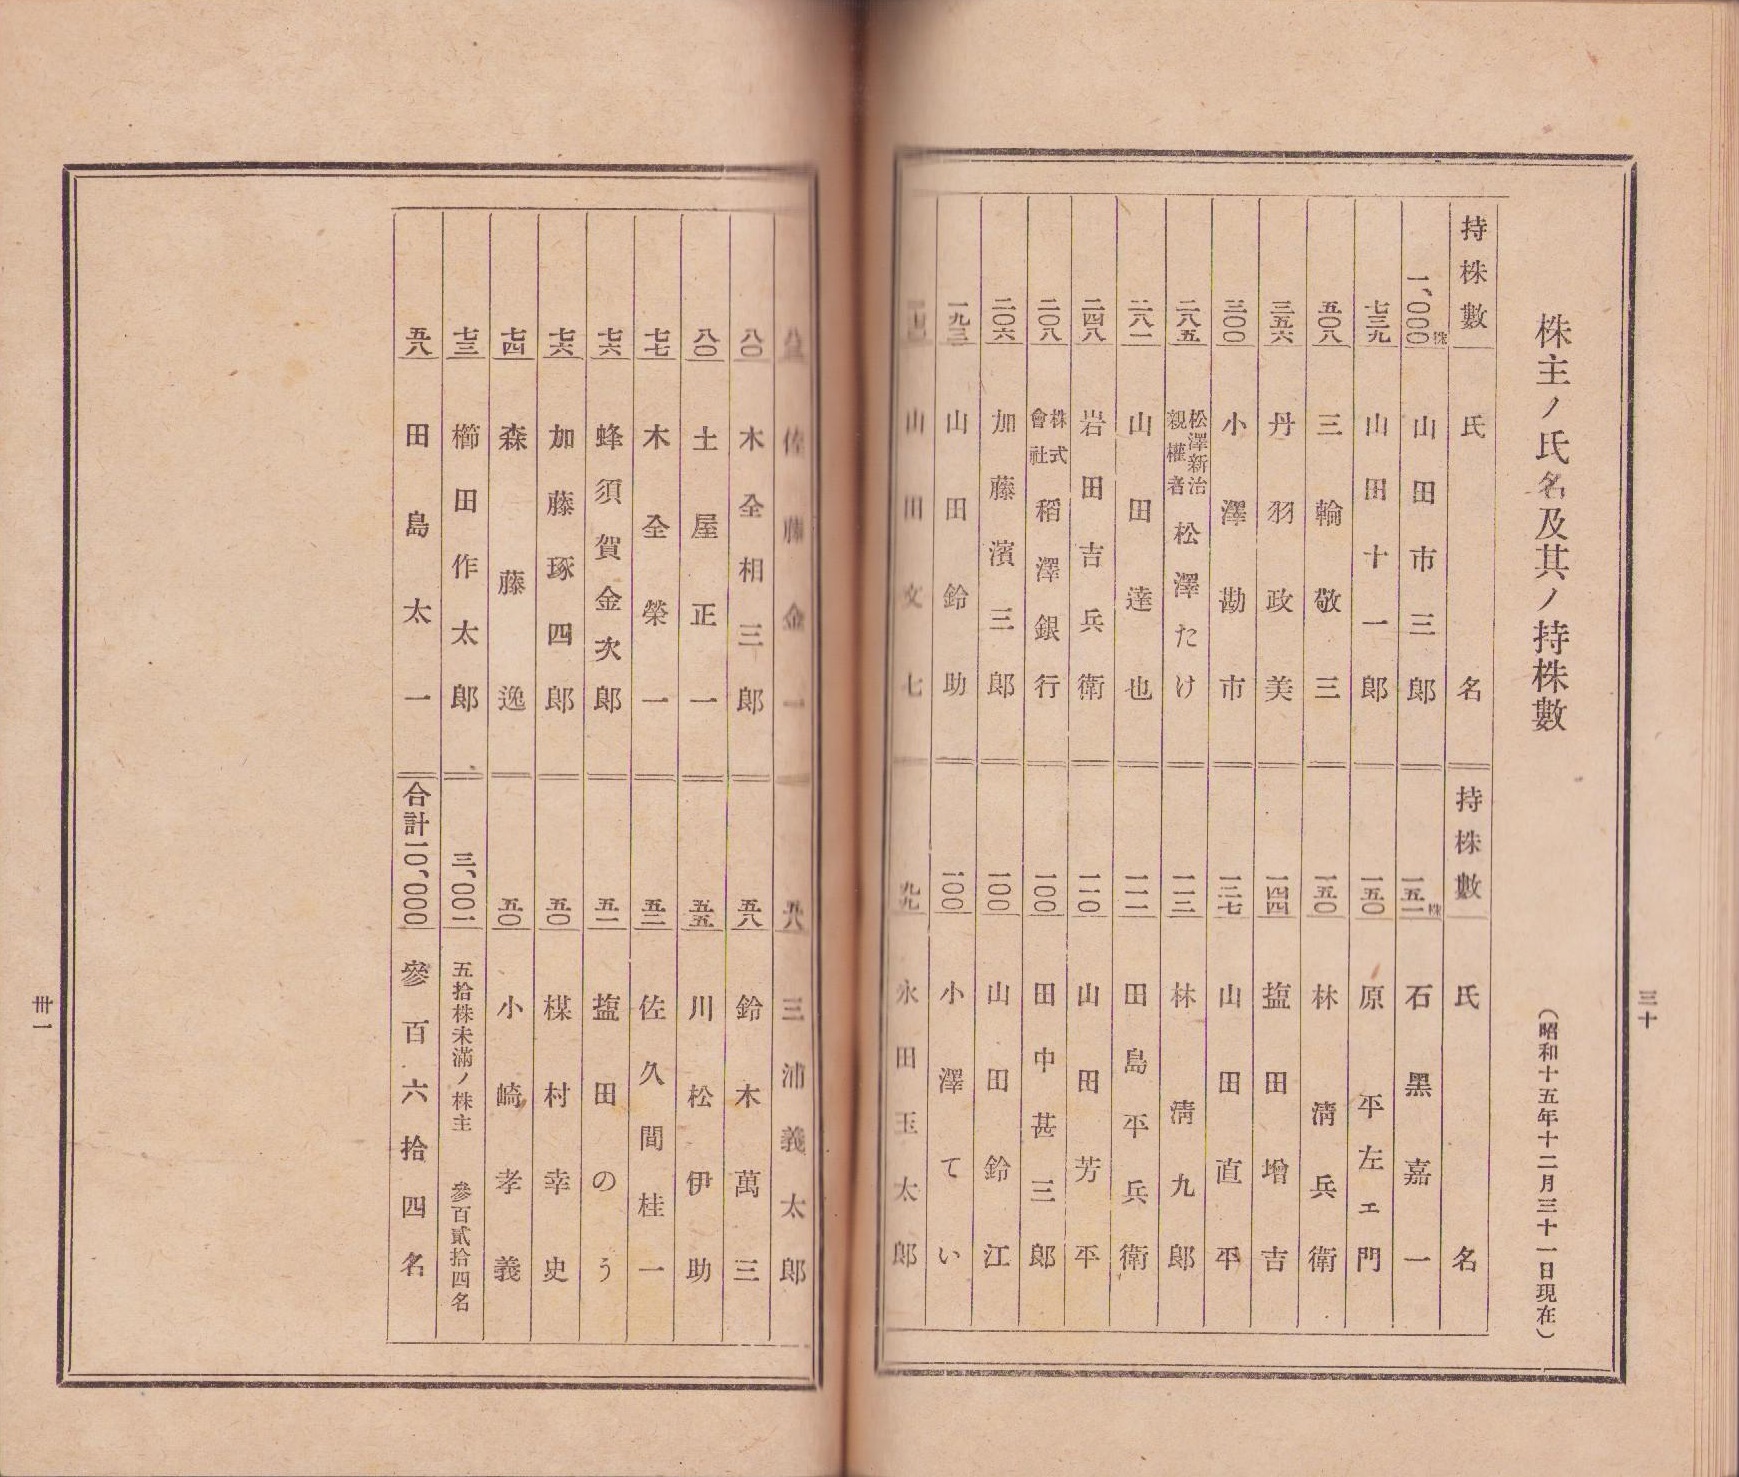 株主ノ氏名及其ノ持株數
(昭和十五年十二月三十一日現在)
持株數 氏名
一、〇〇〇株 山田市三郎
七三九 山田十一郎
五〇八 三輪敬三
三五六 丹羽政美
三〇〇 小澤勘市
二八五 松澤新治親權者 松澤たけ
二八一 山田達也
二四八 岩田吉兵衛
二〇八 株式會社 稻澤銀行
二〇六 加藤濱三郎
一九三 山田鈴助
山川文七
持株數 氏名
一五一株 石黑嘉一
一五〇 原平左エ門
一五〇 林淸兵衛
一四四 塩田增吉
一三七 山田直平
一一三 林淸九郎
一一一 田島平兵衛
一一〇 山田芳平
一〇〇 田中甚三郎
一〇〇 山田鈴江
一〇〇 小澤てい
九九 永田玉太郎
三十
佐藤金一
八〇 木全相三郎
八〇 土屋正一
七七 木全榮一
七六 蜂須賀金次郎
七六 加藤琢四郎
七四 森藤逸
七三 櫛田作太郎
五八 田島太一
五八 三浦義太郎
五八 鈴木萬三
五五 川松伊助
五二 佐久間桂一
五一 塩田のう
五〇 楳村幸史
五〇 小崎孝義
三、〇〇二 五拾株未滿ノ株主 參百貳拾四名
合計一〇、〇〇〇 參百六拾四名
卅一